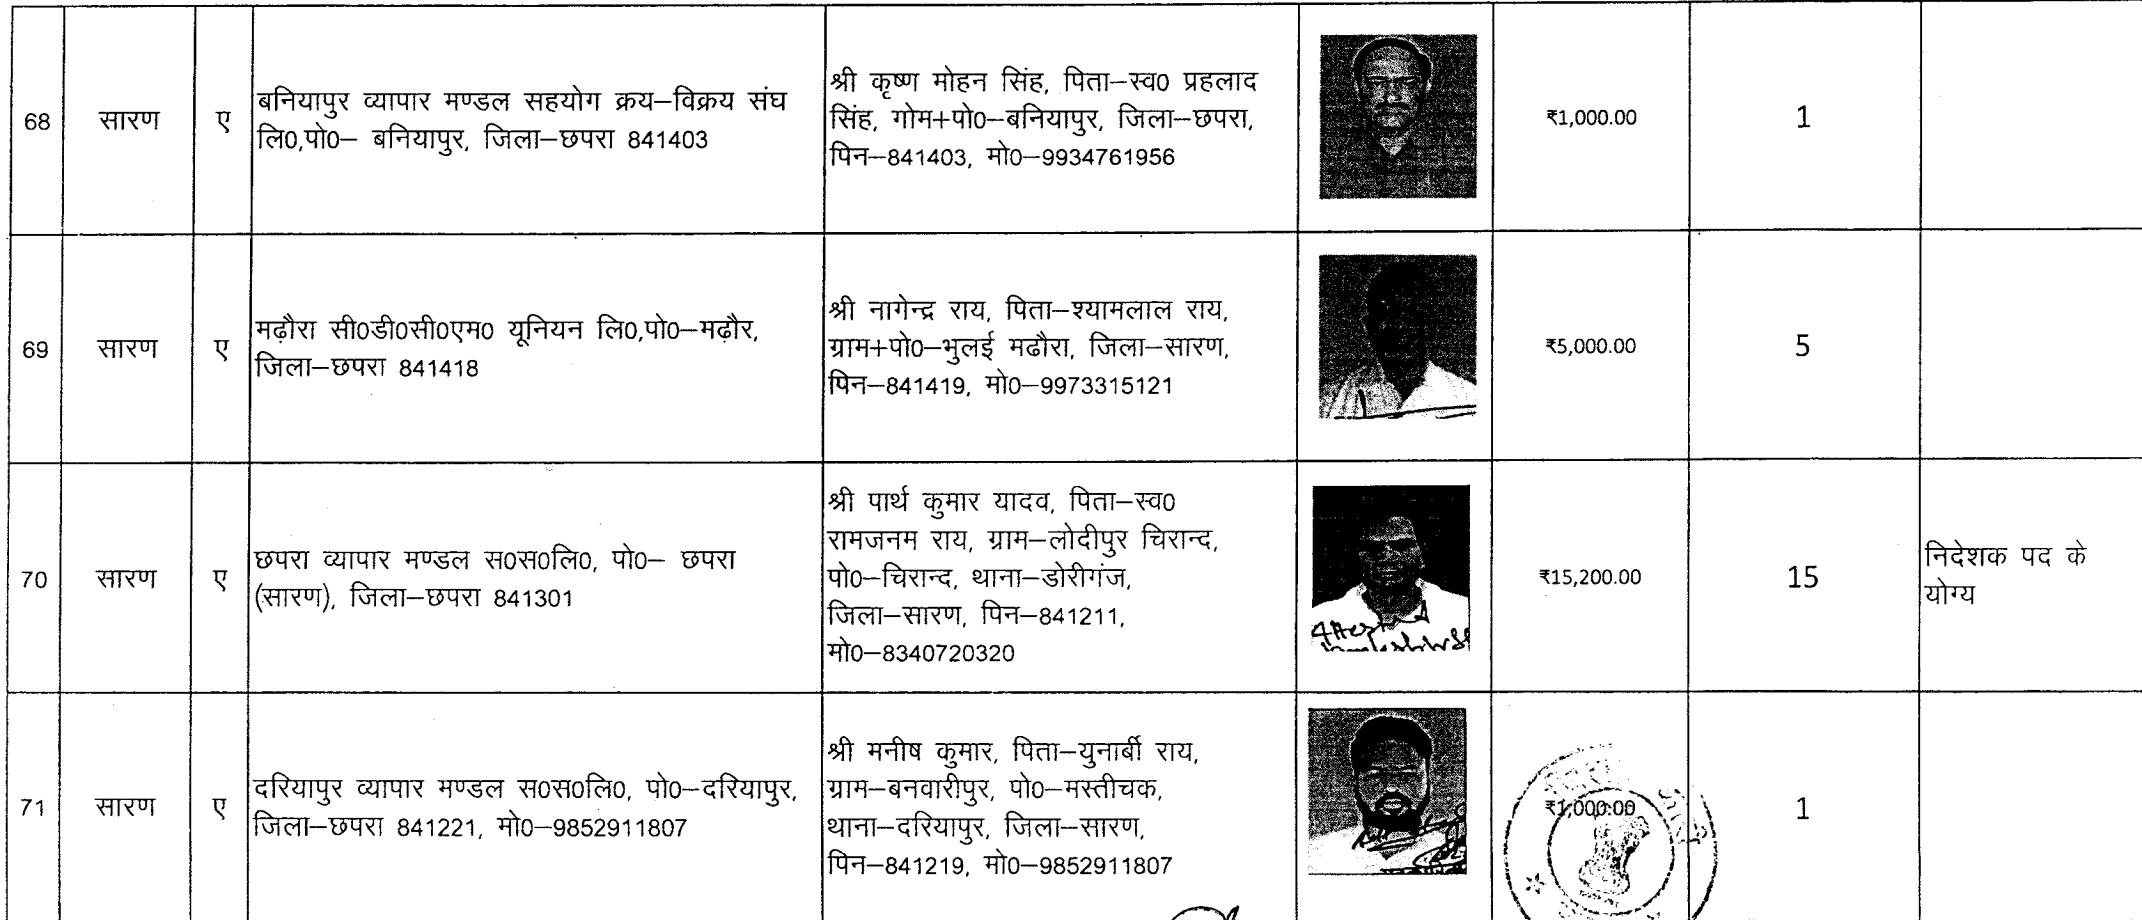 68
सारण
ए
बनियापुर व्यापार मण्डल सहयोग क्रय–विक्रय संघ
लि0,पो0– बनियापुर, जिला–छपरा 841403
श्री कृष्ण मोहन सिंह, पिता–स्व0 प्रहलाद
सिंह, गोम+पो0–बनियापुर, जिला–छपरा,
पिन–841403, मो0–9934761956
₹1,000.00
1
69
सारण
ए
मढ़ौरा सी0डी0सी0एम0 यूनियन लि0,पो0–मढ़ौर,
जिला–छपरा 841418
श्री नागेन्द्र राय, पिता–श्यामलाल राय,
ग्राम+पो0–भुलई मढौरा, जिला–सारण,
पिन–841419, मो0–9973315121
₹5,000.00
5
70
सारण
ए
छपरा व्यापार मण्डल स0स0लि0, पो0– छपरा
(सारण), जिला–छपरा 841301
श्री पार्थ कुमार यादव, पिता–स्व0
रामजनम राय, ग्राम–लोदीपुर चिरान्द,
पो0–चिरान्द, थाना–डोरीगंज,
जिला–सारण, पिन–841211,
मो0–8340720320
₹15,200.00
15
निदेशक पद के
योग्य
71
सारण
ए
दरियापुर व्यापार मण्डल स0स0लि0, पो0–दरियापुर,
जिला–छपरा 841221, मो0–9852911807
श्री मनीष कुमार, पिता–युनार्बी राय,
ग्राम–बनवारीपुर, पो0–मस्तीचक,
थाना–दरियापुर, जिला–सारण,
पिन–841219, मो0–9852911807
₹1,000.00
1